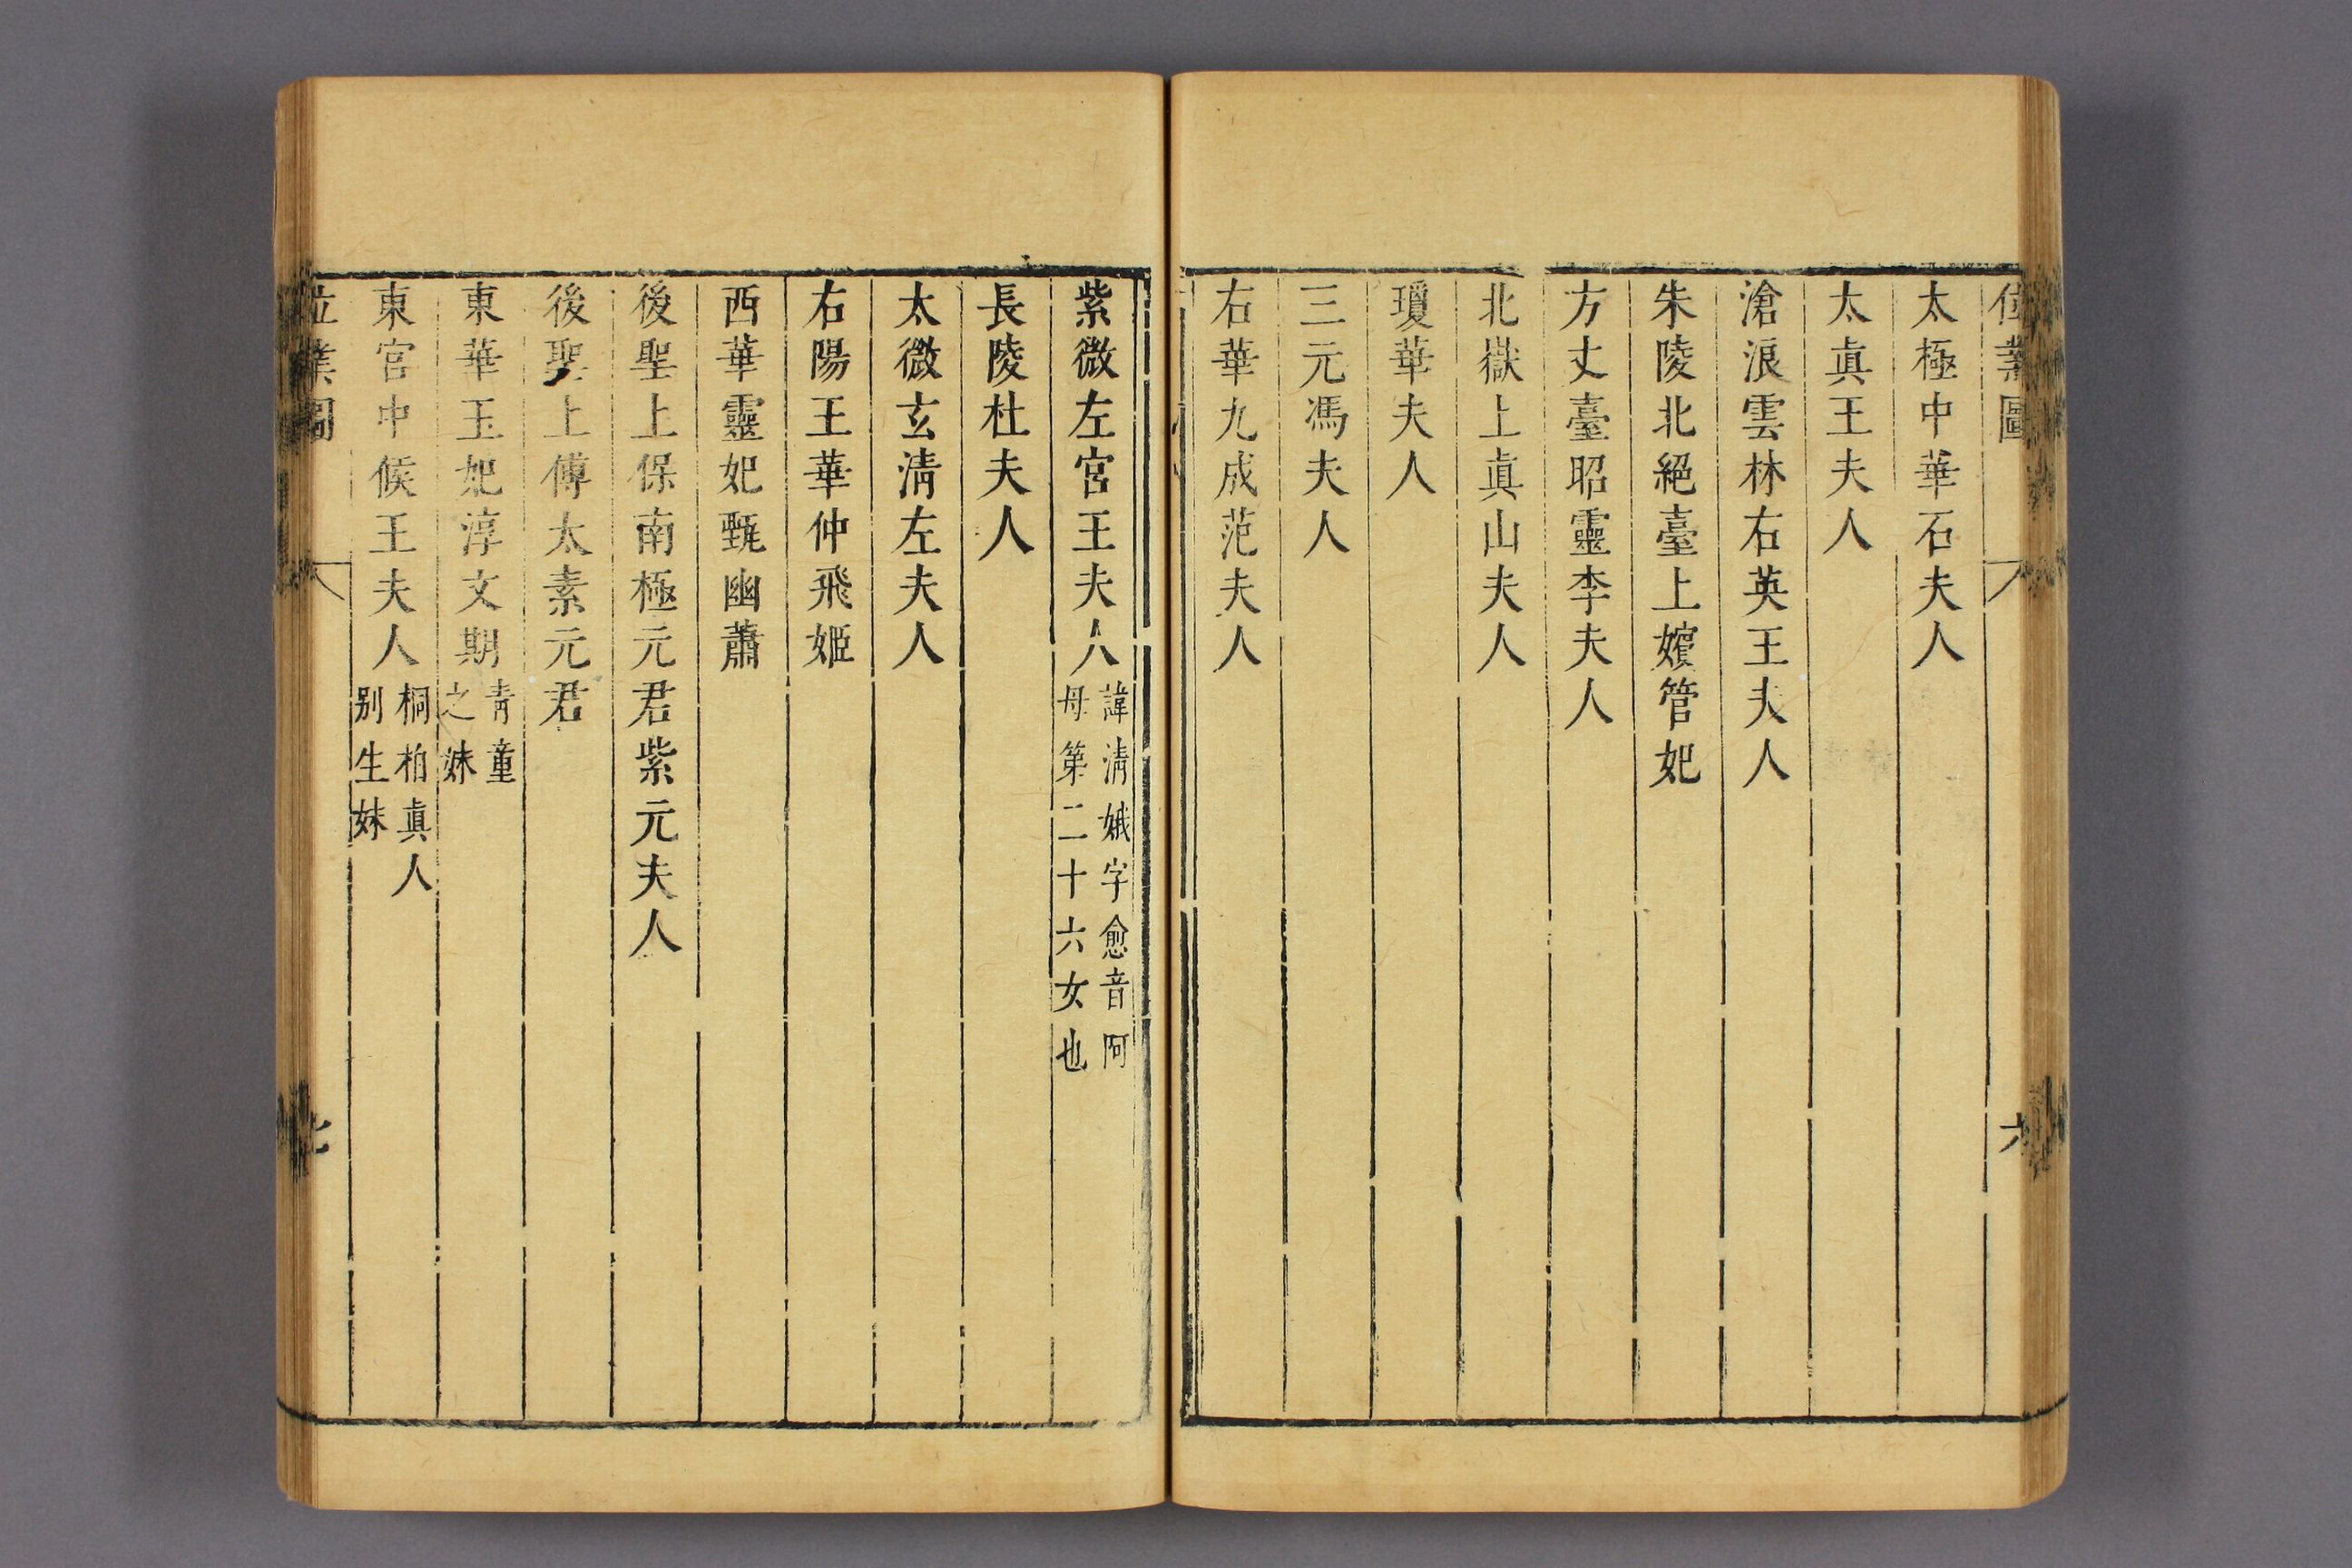 位業圖 六
太極中華石夫人
太眞王夫人
滄浪雲林右英王夫人
朱陵北絕臺上嬪管妃
方丈臺昭靈李夫人
北嶽上眞山夫人
瓊華夫人
三元馮夫人
右華九成范夫人
紫微左宮王夫人諱淸娥字愈音阿母第二十六女也
長陵杜夫人
太微玄淸左夫人
右陽王華仲飛姬
西華靈妃甄幽蕭
後聖上保南極元君紫元夫人
後聖上傅太素元君
東華玉妃淳文期青童之妹
東宮中候王夫人桐柏眞人别生妹
位業圖 七